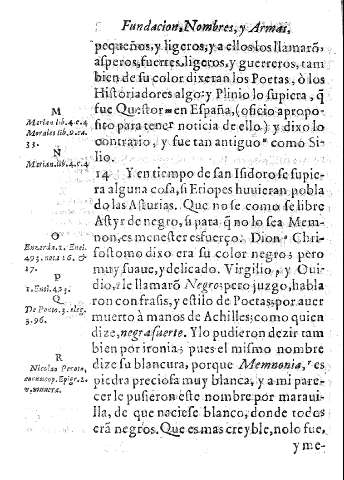 Fundacion, Nombres, y Armas,
pequeños, y ligeros, y a ellos los llamarō
asperos, fuertes, ligeros, y guerreros, tam
bien de su color dixeran los Poetas, ò los
Historiadores algo: y Plinio lo supiera, q̃
fue Questor ᵐ en España, (oficio apropo-
sito para tener noticia de ello) y dixo lo
contrario, y fue tan antiguo ⁿ como Si-
lio.
M
Marian lib. 4. c. 4
Morales lib. 9. ca.
33.
N
Marian. lib. 4. c. 4
14 Y en tiempo de san Isidoro se supie-
ra alguna cosa, si Etiopes huuieran pobla
do las Asturias. Que no se como se libre
Astyr de negro, si para q̃ no lo sea Mem-
non, es menester esfuerço. Dion º Chri-
sostomo dixo era su color negro; pero
muy suaue, y delicado. Virgilio, y Oui-
dio, le llamarō Negro; pero juzgo, habla
ron con frasis, y estilo de Poetas, por auer
muerto à manos de Achilles; como quien
dize, negra suerte. Y lo pudieron dezir tam
bien por ironia; pues el mismo nombre
dize su blancura, porque Memnonia, ʳ es
piedra preciosa muy blanca, y a mi pare-
cer le pusieron este nombre por maraui-
lla, de que naciese blanco, donde todos
erã negros. Que es mas creyble, no lo fue,
y me-
O
493. nota 16. &
17.
P
1. Enel. 493.
Q
De Ponto. 3. eleg.
3. 96.
R
Nicolas Peroto,